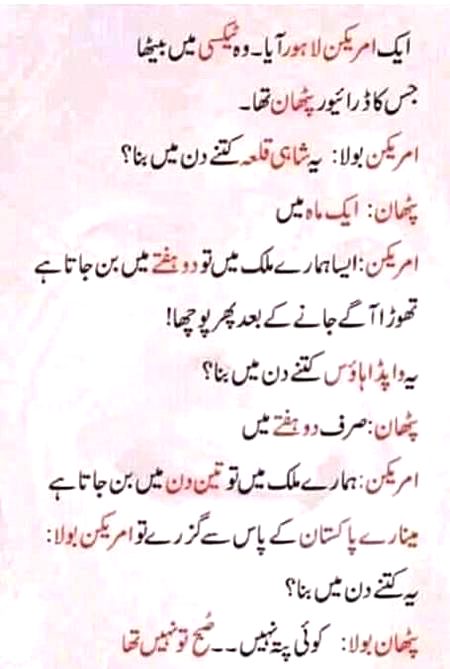 ایک امریکن لاہور آیا۔ وہ ٹیکسی میں بیٹھا
جس کا ڈرائیور پٹھان تھا۔
امریکن بولا: یہ شاہی قلعہ کتنے دن میں بنا؟
پٹھان: ایک ماہ میں
امریکن: ایسا ہمارے ملک میں تو دو ہفتے میں بن جاتا ہے
تھوڑا آگے جانے کے بعد پھر پوچھا!
یہ واپڈا ہاؤس کتنے دن میں بنا؟
پٹھان: صرف دو ہفتے میں
امریکن: ہمارے ملک میں تو تین دن میں بن جاتا ہے
مینارے پاکستان کے پاس سے گزرے تو امریکن بولا:
یہ کتنے دن میں بنا؟
پٹھان بولا: کوئی پتہ نہیں ۔۔ صُبح تو نہیں تھا